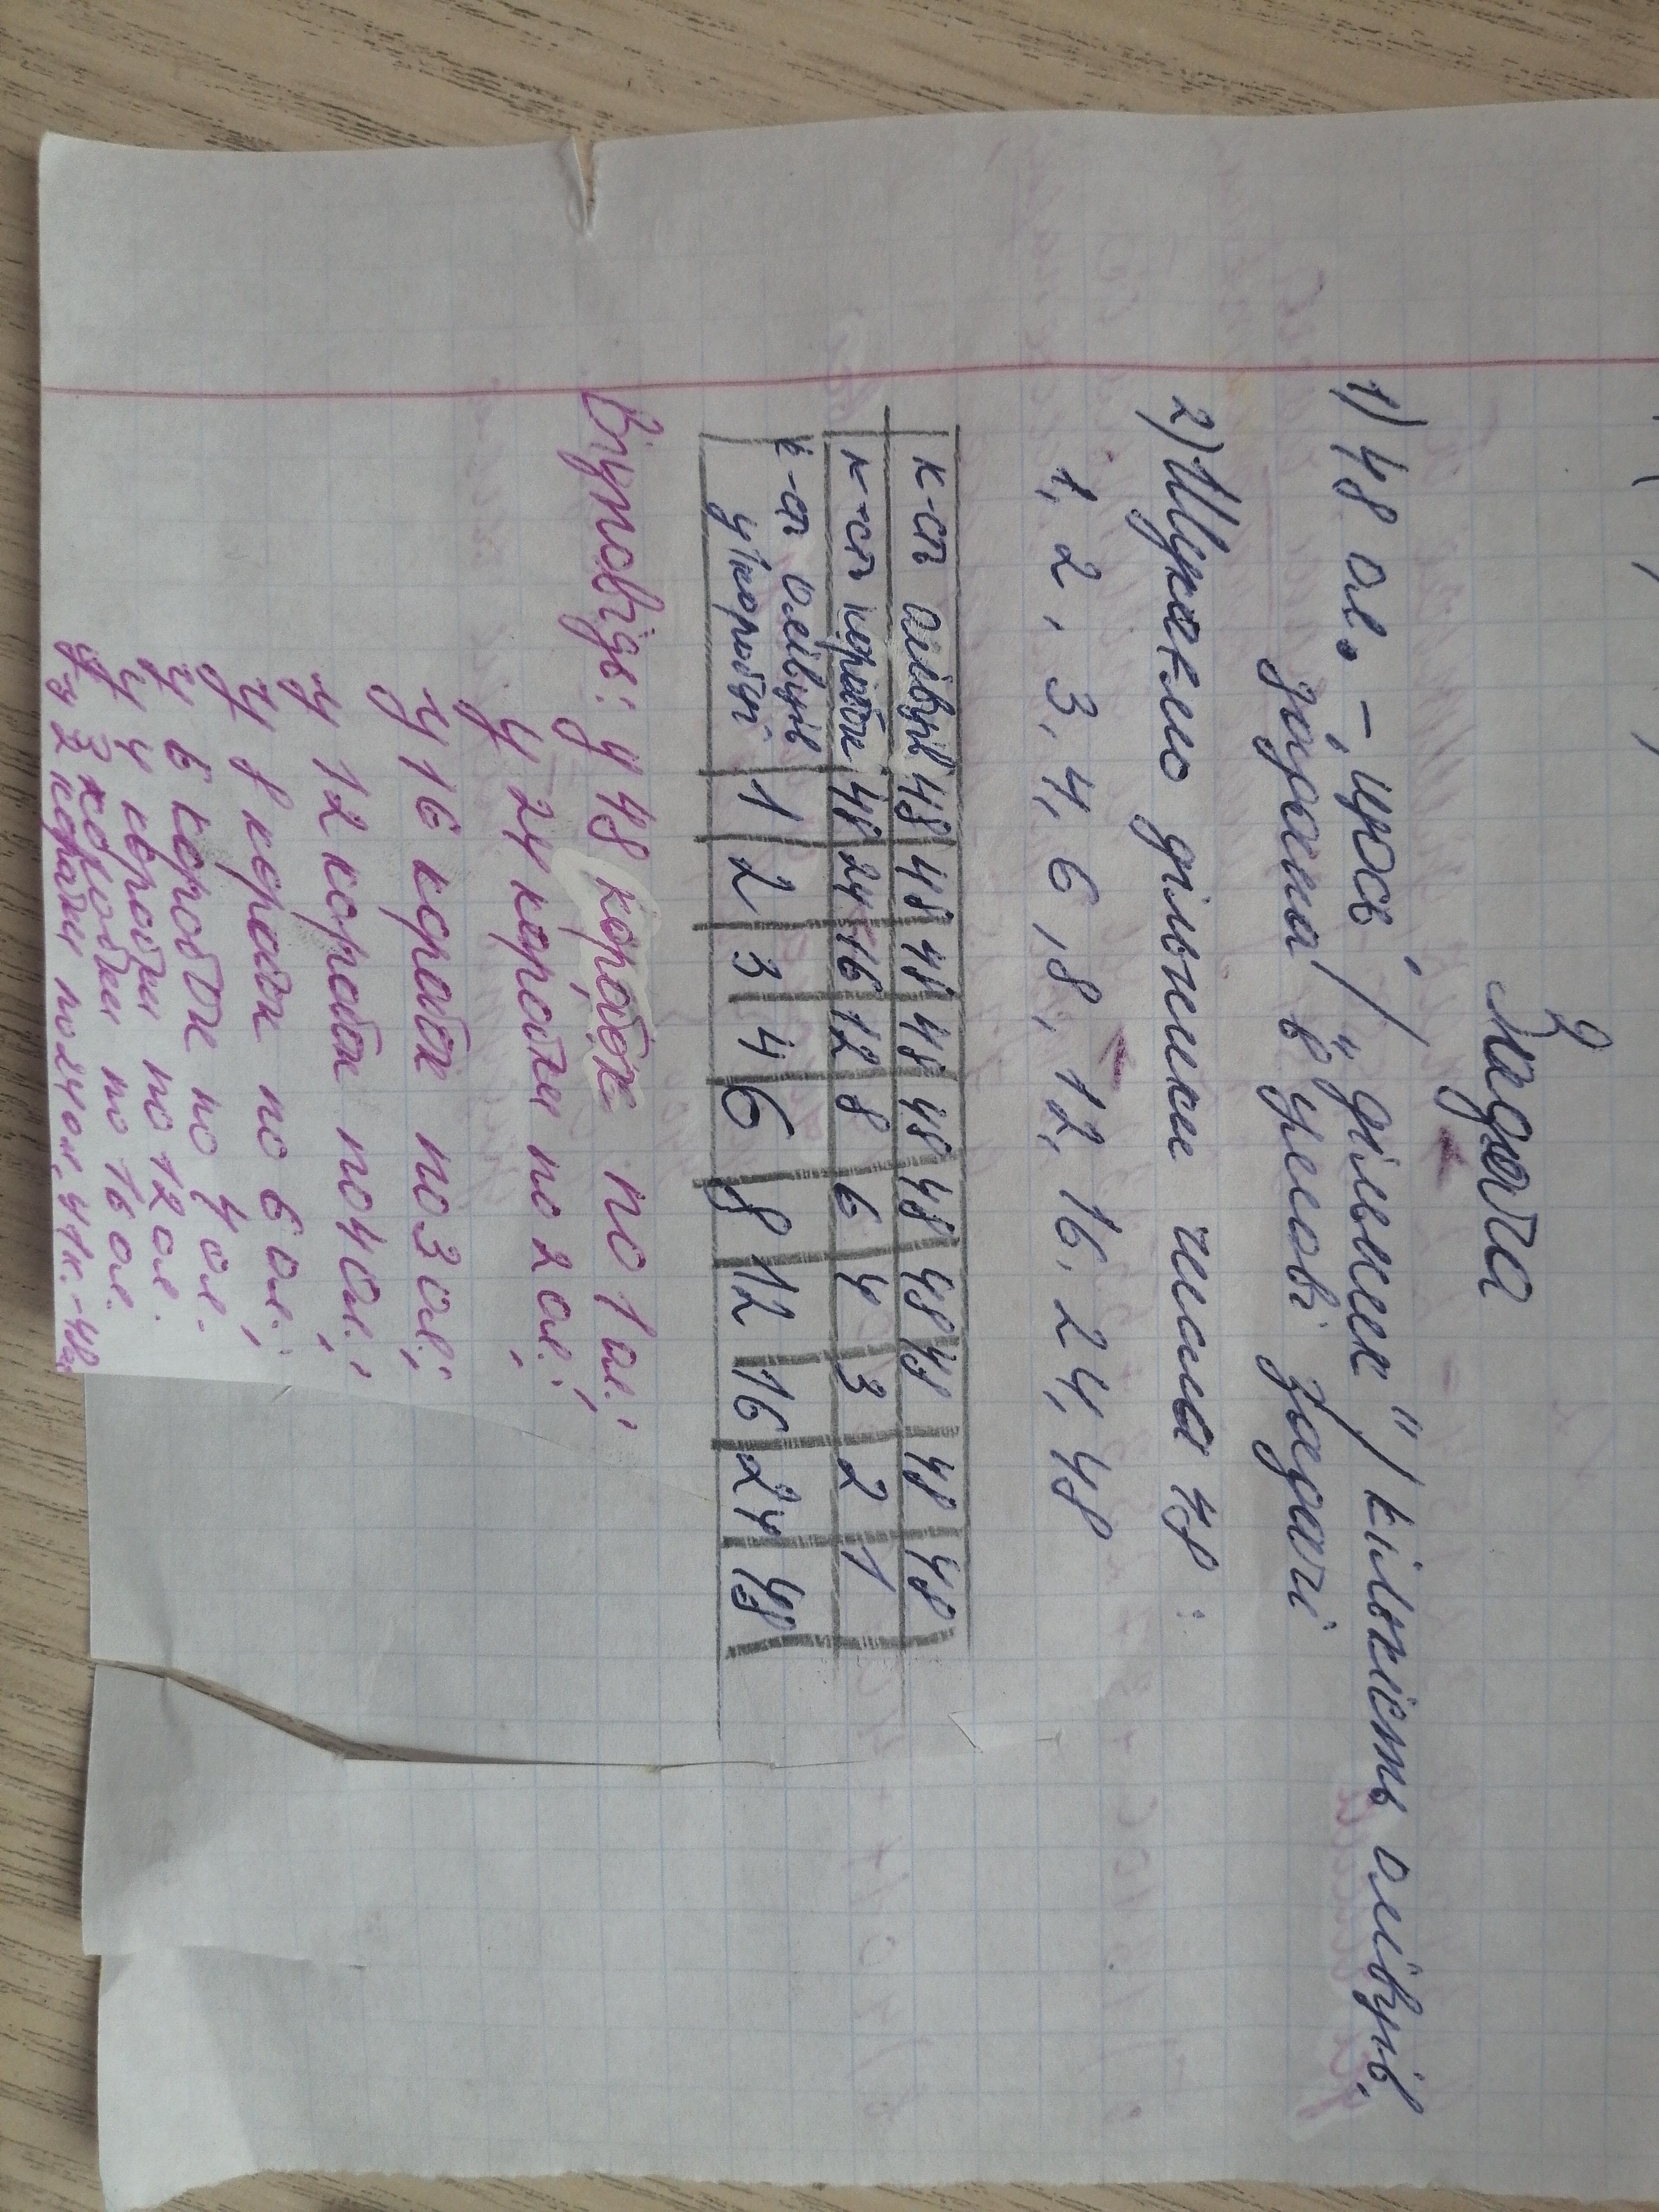 Задача
1) 48 ол. – „щось“ / „ділене“ / кількість олівців,
задана в умові задачі
2) Шукаємо дільники числа 48:
1, 2, 3, 4, 6, 8, 12, 16, 24, 48
к-ст олівців 48 48 48 48 48 48 48 48 48 48
к-ст коробок 48 24 16 12 8 6 4 3 2 1
к-ст олівців у коробці 1 2 3 4 6 8 12 16 24 48
Відповідь: у 48 коробок по 1 ол.;
у 24 коробки по 2 ол.;
у 16 коробок по 3 ол.;
у 12 коробок по 4 ол.;
у 8 коробок по 6 ол.;
у 6 коробок по 4 ол.
у 4 коробки по 12 ол.
у 3 коробки по 16 ол.
у 2 коробки по 24 ол., у 1 к. – 48